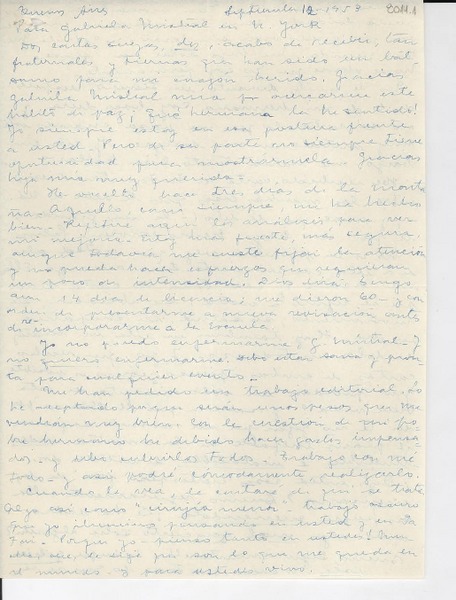 Buenos Aires Septiembre 12 - 1953
Para Gabriela Mistral en N. York
Dos cartas suyas, dos, acabo de recibir, tan
fraternales y tiernas que han sido un bál
samo para mi corazón herido. Gracias
Gabriela Mistral mía por acercarme este
hálito de paz; ¡Qué hermana la he sentido!
Yo siempre estoy en esa postura frente
a usted. Pero de su parte no siempre tiene
oportunidad para mostrármela. Gracias
hoy mía muy querida.
He vuelto hace tres días de la monta
ña. Aquello, como siempre me ha hecho
bien. Repetiré aquí los análisis para ver
mi mejoría. Estoy más fuerte, más segura,
aunque todavía me cueste fijar la atención
y no pueda hacer esfuerzos que requieran
un poco de intensidad. Dos días tengo
aún 14 días de licencia; me dieron 60 - y con
orden de presentarme a nueva revisación antes
de incorporarme a la escuela.
Yo no puedo enfermarme, G. Mistral - Y
no quiero enfermarme. Debo estar sana y pron
ta para cualquier evento.
Me han pedido un trabajo editorial. Lo
he aceptado porque serán unos pesos que me
vendrán muy bien. Con la cuestión de mi po
bre hermano he debido hacer gastos impensa
dos - y debo cubrirlos todos. Trabajo con mé
todo - y así podré, cómodamente, realizarlo.
Cuando la vea, le contaré de qué se trata.
Algo así como "cirugía menor" - trabajo oscuro
que yo ilumino pensando en usted y en la
Fani. Porque yo pienso tanto en ustedes!
que son lo que me queda en
el mundo. Y para ustedes vivo.